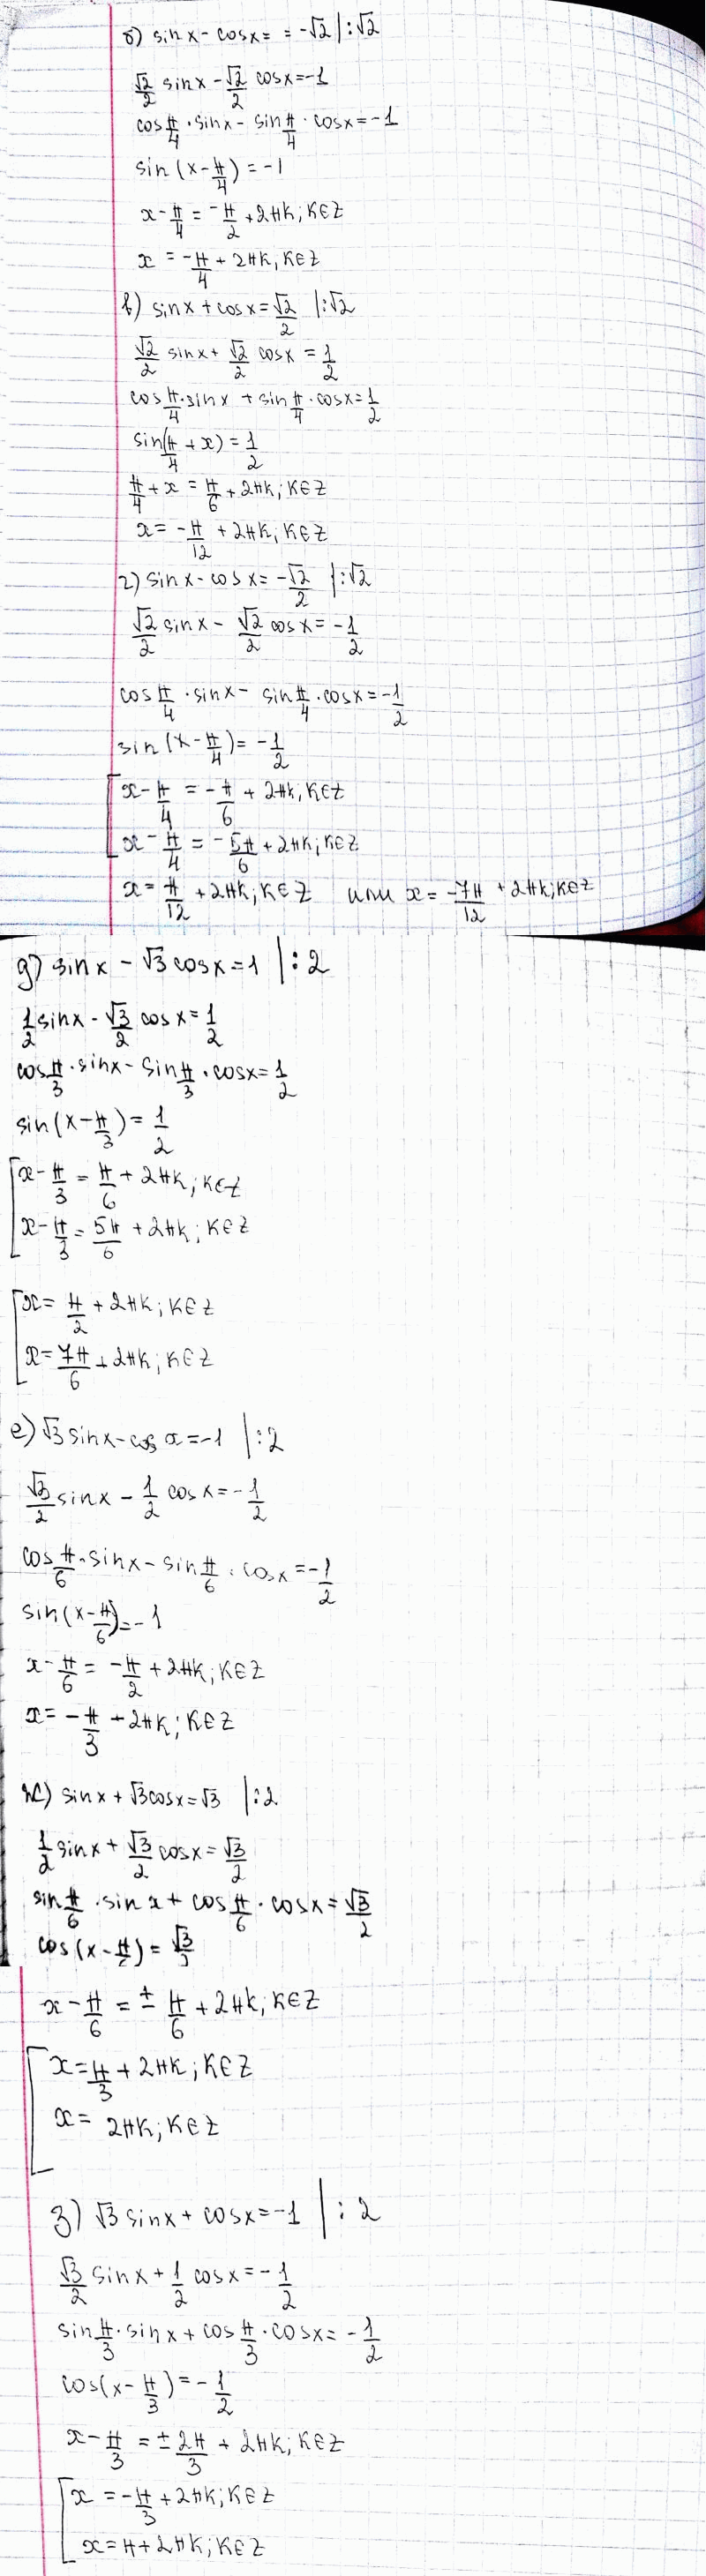 б) sinx - cosx = = -√2 |:√2
√2/2 sinx - √2/2 cosx = -1
cos π/4 · sinx - sin π/4 · cosx = -1
sin (x - π/4) = -1
x - π/4 = -π/2 + 2πk; k∈Z
x = -π/4 + 2πk, k∈Z
в) sinx + cosx = √2/2 |:√2
√2/2 sinx + √2/2 cosx = 1/2
cos π/4 · sinx + sin π/4 · cosx = 1/2
sin(π/4 + x) = 1/2
π/4 + x = π/6 + 2πk; k∈Z
x = -π/12 + 2πk, k∈Z
г) sinx - cosx = -√2/2 |:√2
√2/2 sinx - √2/2 cosx = -1/2
cos π/4 · sinx - sin π/4 · cosx = -1/2
sin (x - π/4) = -1/2
[ x - π/4 = -π/6 + 2πk, k∈Z
x - π/4 = -5π/6 + 2πk; k∈Z
x = π/12 + 2πk; k∈Z или x = -7π/12 + 2πk; k∈Z
д) sinx - √3 cosx = 1 |:2
1/2 sinx - √3/2 cosx = 1/2
cos π/3 · sinx - sin π/3 · cosx = 1/2
sin (x - π/3) = 1/2
[ x - π/3 = π/6 + 2πk; k∈Z
x - π/3 = 5π/6 + 2πk; k∈Z
[ x = π/2 + 2πk; k∈Z
x = 7π/6 + 2πk; k∈Z
е) √3 sinx - cos x = -1 |:2
√3/2 sinx - 1/2 cosx = -1/2
cos π/6 · sinx - sin π/6 · cosx = -1/2
sin (x - π/6) = -1
x - π/6 = -π/2 + 2πk; k∈Z
x = -π/3 + 2πk; k∈Z
ж) sinx + √3cosx = √3 |:2
1/2 sinx + √3/2 cosx = √3/2
sin π/6 · sin x + cos π/6 · cosx = √3/2
cos (x - π/6) = √3/2
x - π/6 = ± π/6 + 2πk, k∈Z
[ x = π/3 + 2πk; k∈Z
x = 2πk; k∈Z
з) √3 sinx + cosx = -1 |:2
√3/2 sinx + 1/2 cosx = -1/2
sin π/3 · sinx + cos π/3 · cosx = -1/2
cos(x - π/3) = -1/2
x - π/3 = ± 2π/3 + 2πk; k∈Z
[ x = -π/3 + 2πk; k∈Z
x = π + 2πk; k∈Z